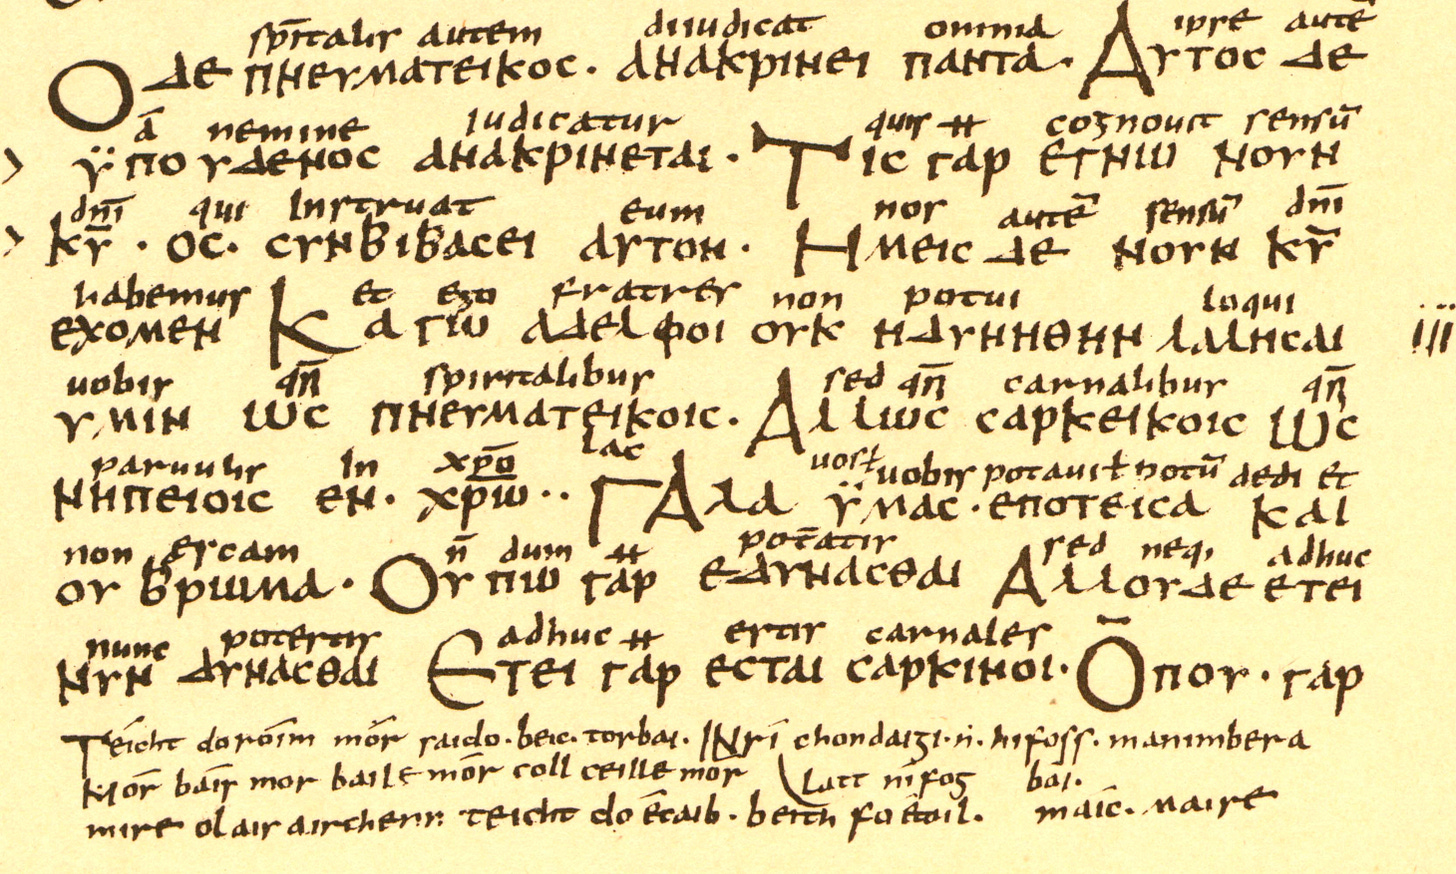 sp̅italis autem diiudicat omnia ipse aute̅
Ο ΔΕ ΠΝΕΥΜΑΤΕΙΚΟС· ΑΝΑΚΡΙΝΕΙ ΠΑΝΤΑ· ΑΥΤΟС ΔΕ
a̅ nemine iudicatur quis ++ cognouit sensu̅
ΫΠΟ ΥΔΕΝΟС ΑΝΑΚΡΙΝΕΤΑΙ· ΤΙС ΓΑΡ ΕΓΝΩ ΝΟΥΝ
dn̅i qui instruat eum nos aute̅ sensu̅ dn̅i
ΚΥ̅· ΟС· СΥΝΒΙΒΑСΕΙ ΑΥΤΟΝ· ΗΜΕΙС ΔΕ ΝΟΥΝ ΚΥ̅
habemus et ego fratres non potui loqui
ΕΧΟΜΕΝ ΚΑΓΩ ΑΔΕΛΦΟΙ ΟΥΚ ΗΔΥΝΗΘΗΝ ΛΑΛΗСΑΙ
uobis qn̅ spiritalibus sed qn̅ carnalibus qn̅
ΥΜΙΝ ΩС ΠΝΕΥΜΑΤΕΙΚΟΙС· ΑΛΛΩС СΑΡΚΕΙΚΟΙС ΩС
paruulis in xp̅o lac uobis potaui ł potu̅ dedi et
ΝΗΠΕΙΟΙС ΕΝ· ΧΡ̅Ω·· ΓΑΛΑ ΫΜΑС· ΕΠΟΤΕΙСΑ ΚΑΙ
non escam n̅ dum ++ pote̅atis sed neq; adhuc
ΟΥ ΒΡΩΜΑ· ΟΥΠΩ ΓΑΡ ΕΔΥΝΑСΘΑΙ ΑΛΛΟΥΔΕ ΕΤΕΙ
nunc potestis adhuc ++ estis carnales
ΝΥΝ ΔΥΝΑСΘΑΙ ΕΤΕΙ ΓΑΡ ΕСΤΑΙ СΑΡΚΙΝΟΙ· ΟΠΟΥ· ΓΑΡ
Téicht doróim mór saido· beic· torbai· INrí chondaigi· n̅· hifoss· manimbera
Mór báis mor baile mór coll ceille mór latt ní fog bai·
mire olais airchenn teicht do écaib· beith fo étoil· maic· Maire